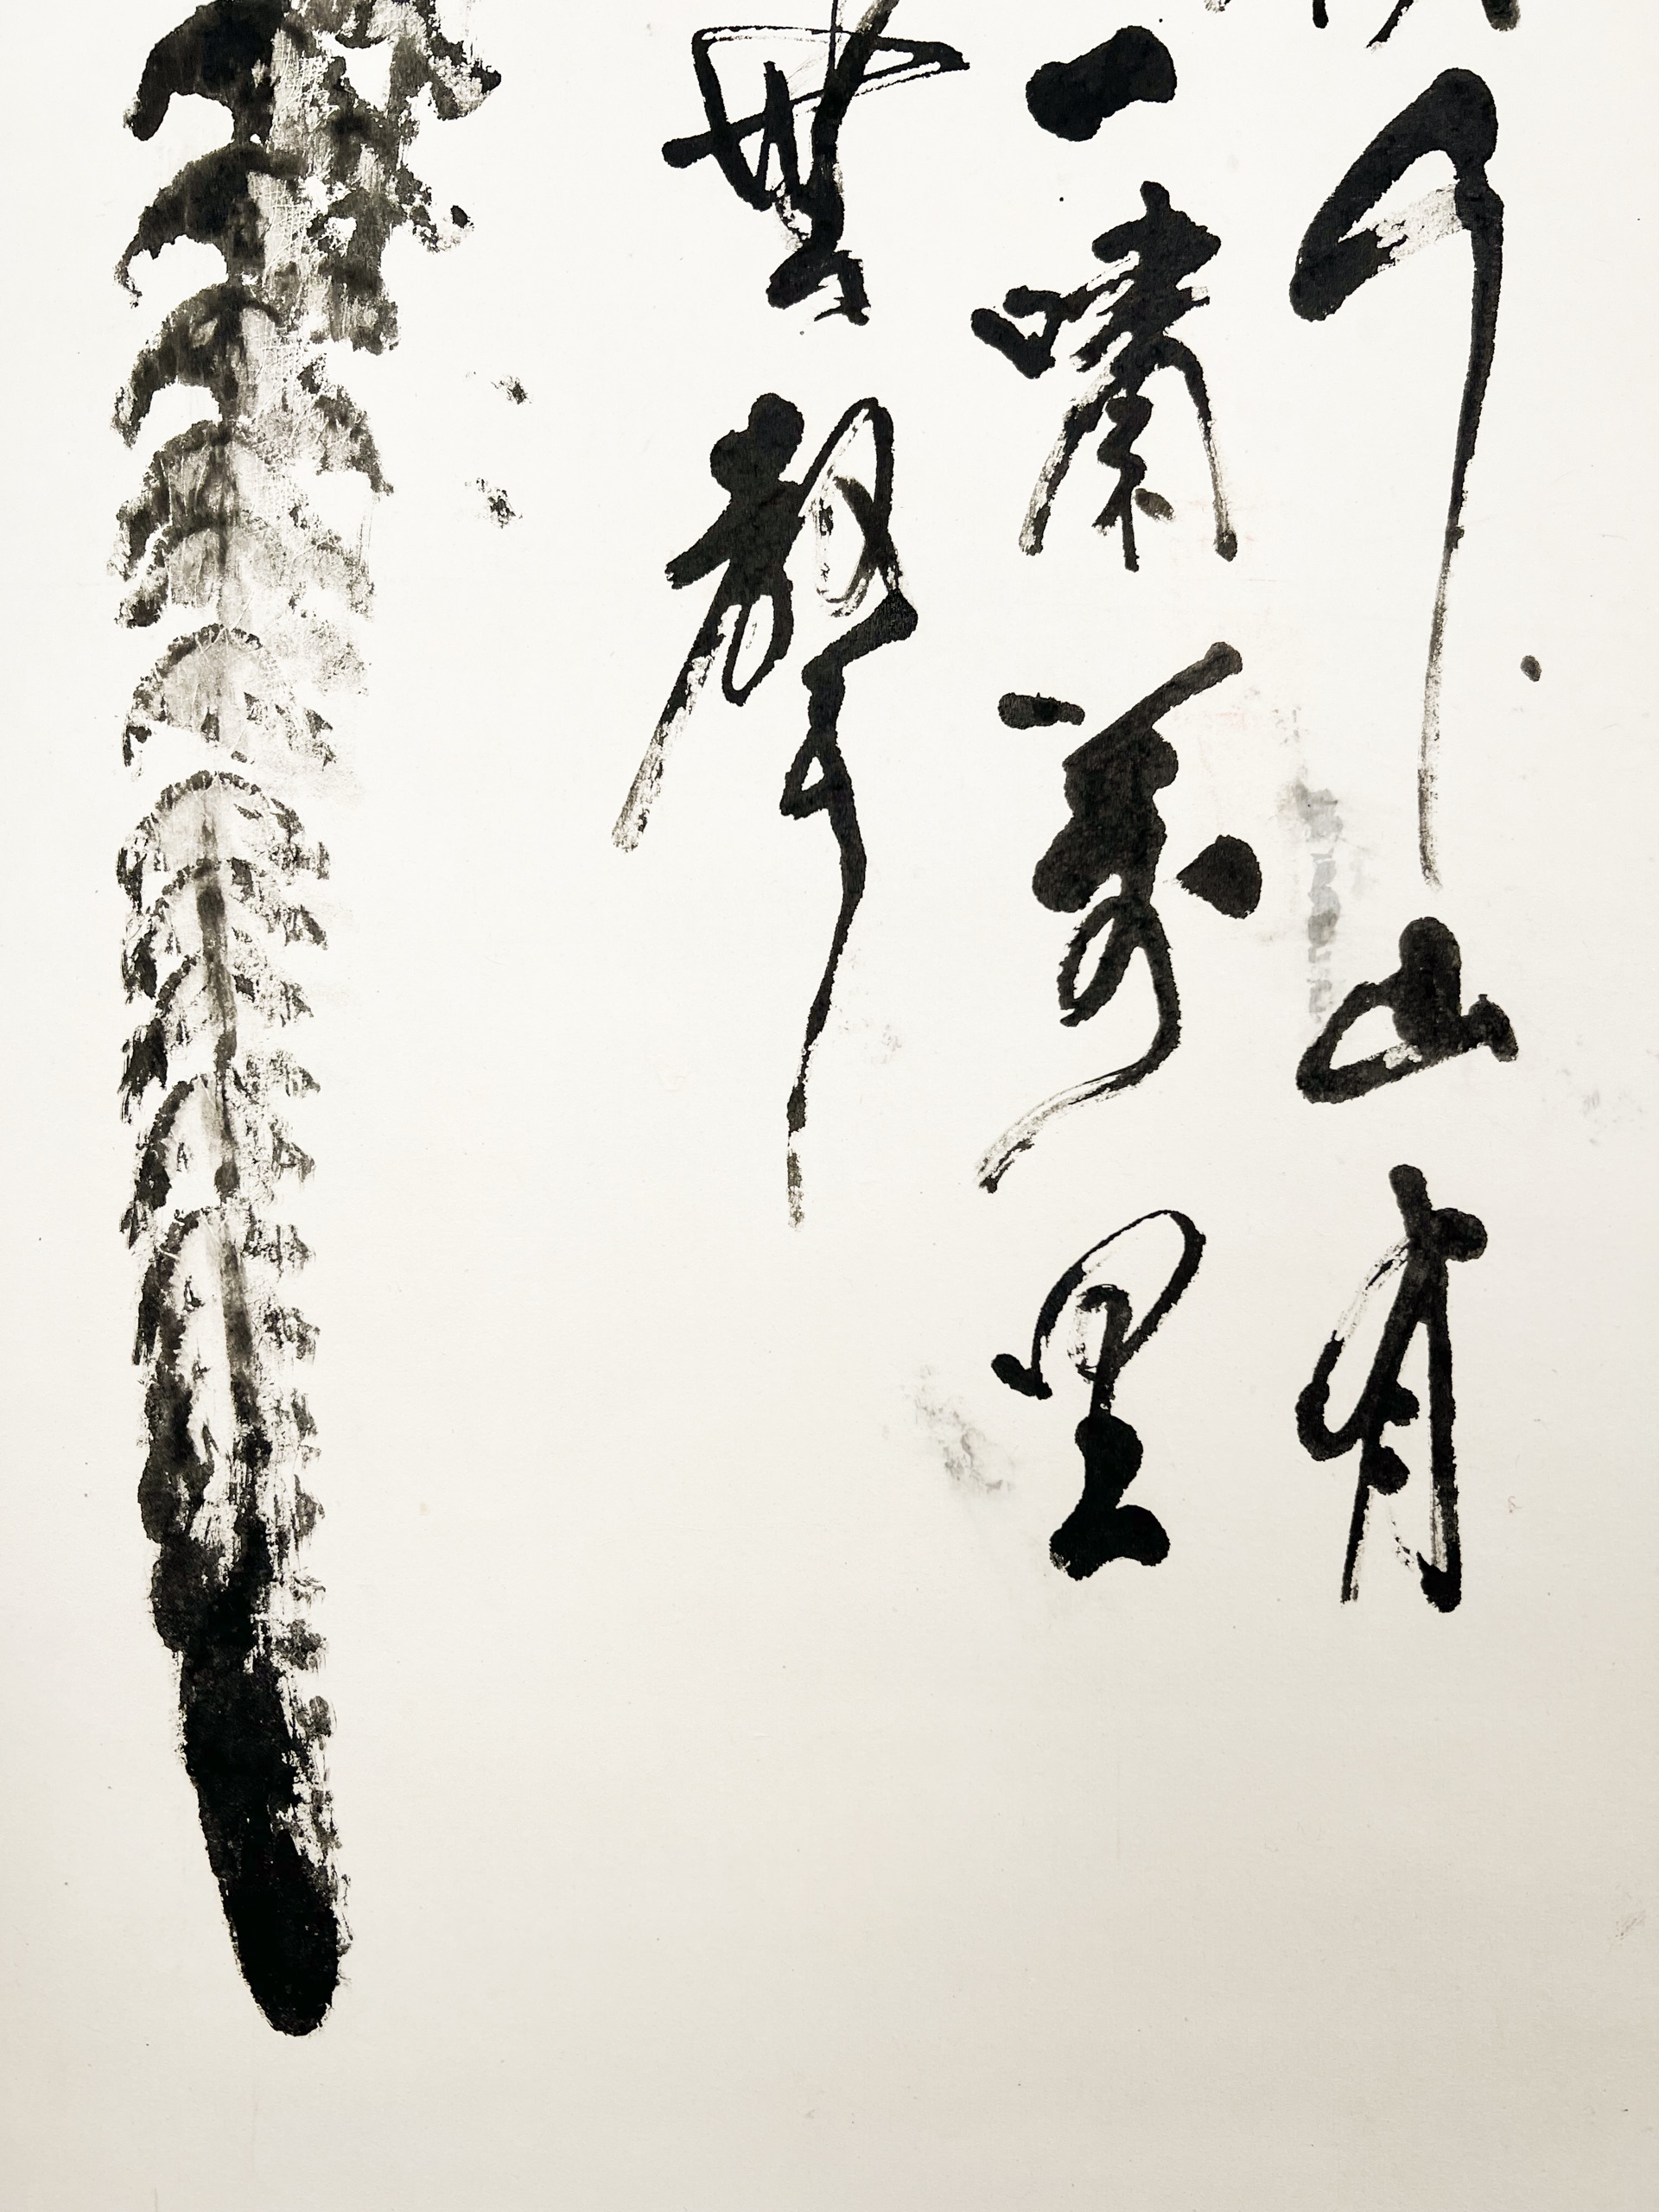 山有
一嘯萬里
無聲